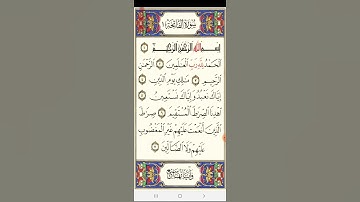 سُورَةُ الفَاتِحَةِ
بِسْمِ اللَّهِ الرَّحْمَٰنِ الرَّحِيمِ ۝١
الْحَمْدُ لِلَّهِ رَبِّ الْعَالَمِينَ ۝٢ الرَّحْمَٰنِ
الرَّحِيمِ ۝٣ مَالِكِ يَوْمِ الدِّينِ ۝٤
إِيَّاكَ نَعْبُدُ وَإِيَّاكَ نَسْتَعِينُ ۝٥
اهْدِنَا الصِّرَاطَ الْمُسْتَقِيمَ ۝٦ صِرَاطَ
الَّذِينَ أَنْعَمْتَ عَلَيْهِمْ غَيْرِ الْمَغْضُوبِ
عَلَيْهِمْ وَلَا الضَّالِّينَ ۝٧